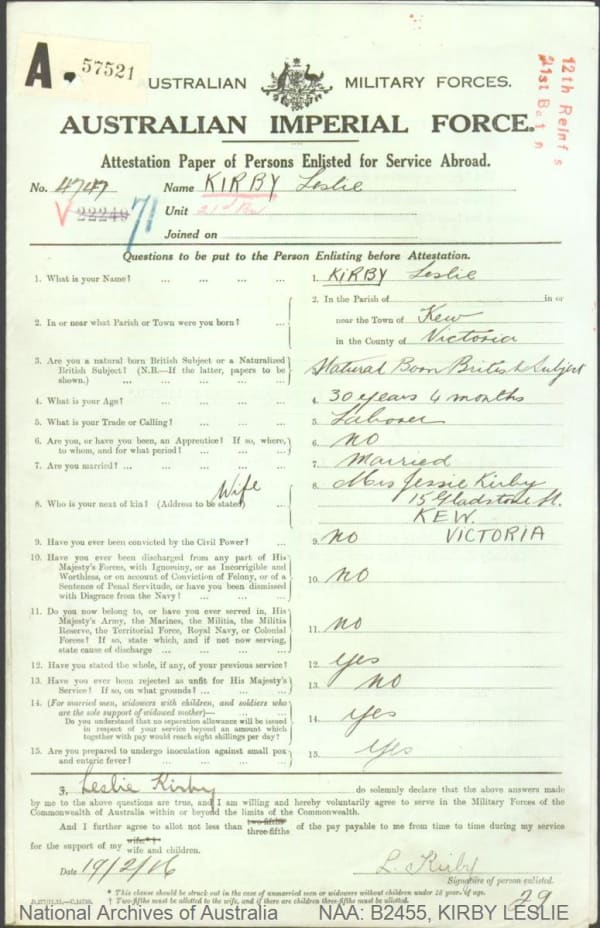 A. 57521
AUSTRALIAN MILITARY FORCES.
AUSTRALIAN IMPERIAL FORCE.
12th Reinf s
21st Bat n
Attestation Paper of Persons Enlisted for Service Abroad.
No. 4747 Name KIRBY Leslie
V 22249 71 Unit 21st Bn
Joined on
Questions to be put to the Person Enlisting before Attestation.
1. What is your Name? ... ... ... ... 1. KIRBY Leslie
2. In or near what Parish or Town were you born? ... 2. In the Parish of in or
near the Town of Kew
in the County of Victoria
3. Are you a natural born British Subject or a Naturalized
British Subject? (N.B.—If the latter, papers to be
shown.) ... ... ... ... Natural Born British Subject
4. What is your Age? ... ... ... ... 4. 30 years 4 months
5. What is your Trade or Calling? ... ... ... 5. Laborer
6. Are you, or have you been, an Apprentice? If so, where,
to whom, and for what period? ... ... ... 6. no
7. Are you married? ... ... ... ... 7. Married
8. Who is your next of kin? (Address to be stated) ... Wife 8. Mrs Jessie Kirby
15 Gladstone St.
KEW.
VICTORIA
9. Have you ever been convicted by the Civil Power? ... 9. no
10. Have you ever been discharged from any part of His
Majesty's Forces, with Ignominy, or as Incorrigible and
Worthless, or on account of Conviction of Felony, or of a
Sentence of Penal Servitude, or have you been dismissed
with Disgrace from the Navy? ... ... ... 10. no
11. Do you now belong to, or have you ever served in, His
Majesty's Army, the Marines, the Militia, the Militia
Reserve, the Territorial Force, Royal Navy, or Colonial
Forces? If so, state which, and if not now serving,
state cause of discharge ... ... ... 11. no
12. Have you stated the whole, if any, of your previous service? 12. yes
13. Have you ever been rejected as unfit for His Majesty's
Service? If so, on what grounds? ... ... ... 13. no
14. (For married men, widowers with children, and soldiers who
are the sole support of widowed mother)—
Do you understand that no separation allowance will be issued
in respect of your service beyond an amount which
together with pay would reach eight shillings per day? 14. yes
15. Are you prepared to undergo inoculation against small pox
and enteric fever? ... ... ... ... 15. yes
3. Leslie Kirby do solemnly declare that the above answers made
by me to the above questions are true, and I am willing and hereby voluntarily agree to serve in the Military Forces of the
Commonwealth of Australia within or beyond the limits of the Commonwealth.
And I further agree to allot not less than two-fifths three-fifths of the pay payable to me from time to time during my service
for the support of my wife*† wife and children.
Date 19/2/16 L. Kirby
Signature of person enlisted.
* This clause should be struck out in the case of unmarried men or widowers without children under 18 years of age.
† Two-fifths must be allotted to the wife, and if there are children three-fifths must be allotted.
29
National Archives of Australia NAA: B2455, KIRBY LESLIE